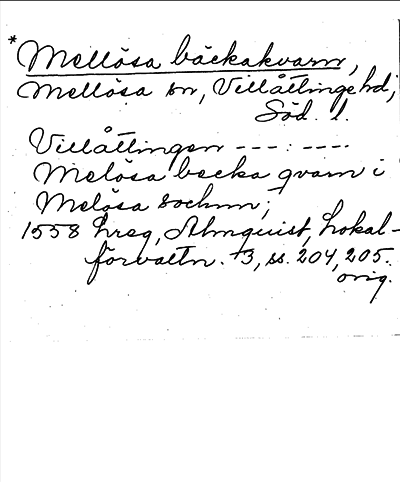 * Mellösa bäckakvarn,
Mellösa sn, Villåttinge hd,
Söd. l.
Villåttingen ---:---.
Melösa becka qvarn i
Melösa sochnn;
1558 hreg, Almquist, Lokal-
förvaltn. 3, ss. 204, 205.
orig.